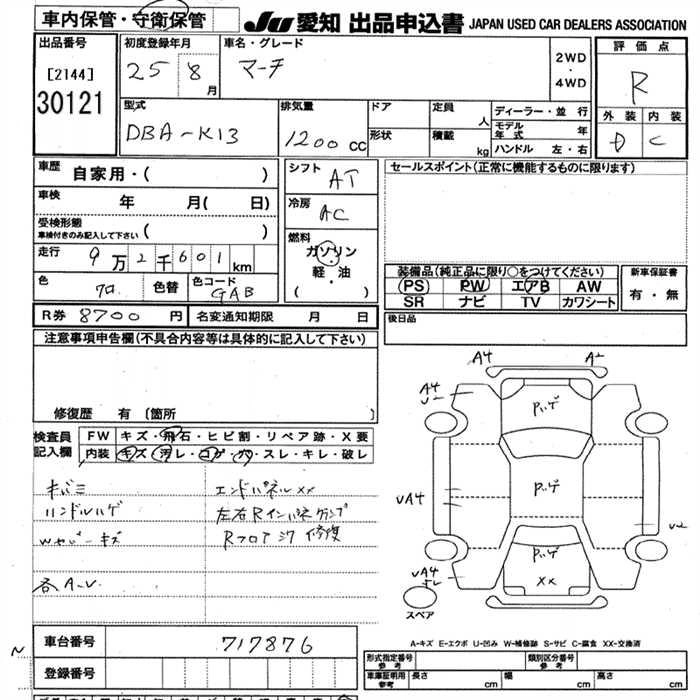 車内保管・守衛保管
JU 愛知 出品申込書 JAPAN USED CAR DEALERS ASSOCIATION
出品番号
[2144]
30121
初度登録年月
25 8 月
車名・グレード
マーチ
2WD
・
4WD
評価点
R
外装 内装
D C
型式
DBA-K13
排気量
1200 cc
ドア
形状
定員
人
積載
kg
ディーラー・並行
モデル年式 年
ハンドル 左・右
車歴
自家用・( )
車検
年 月( 日)
受検形態
車検付きのみ記入して下さい ( )
走行
9万2千601km
色
クロ
色替
色コード
GAB
シフト
AT
冷房
AC
燃料
ガソリン
・
軽・油
( )
セールスポイント(正常に機能するものに限ります)
装備品(純正品に限り○をつけてください)
PS PW エアB AW
SR ナビ TV カワシート
新車保証書
有・無
R券 8700 円
名変通知期限 月 日
後日品
注意事項申告欄(不具合内容等は具体的に記入して下さい)
修復歴 有 〔箇所 〕
検査員記入欄
FW キズ・飛石・ヒビ割・リペア跡・X要
内装 キズ・汚レ・コゲ・穴・スレ・キレ・破レ
キバミ
ハンドルハゲ
Wカバーキズ
各A.U
エンドパネルXX
左右Rインパネクランプ
Rフロア 修復
A4 A2
A4
U-
Pハゲ
Pハゲ
Pハゲ
XX
UA4
UA4
U2
スペア
A-キズ E-エクボ U-凹み W-補修跡 S-サビ C-腐食 XX-交換済
N
車台番号
717876
登録番号
形式指定番号
参考
類別区分番号
参考
車庫証明用
参考
長さ cm 幅 cm 高さ cm